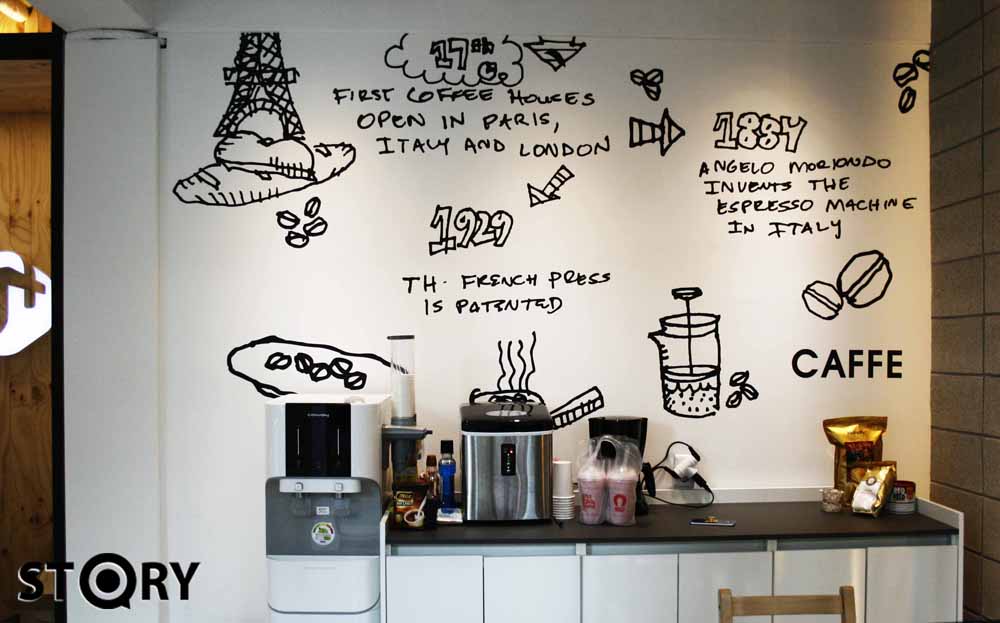 17th C
FIRST COFFEE HOUSES
OPEN IN PARIS,
ITALY AND LONDON
1884
ANGELO MORIONDO
INVENTS THE
ESPRESSO MACHINE
IN ITALY
1929
TH. FRENCH PRESS
IS PATENTED
CAFFE
STORY